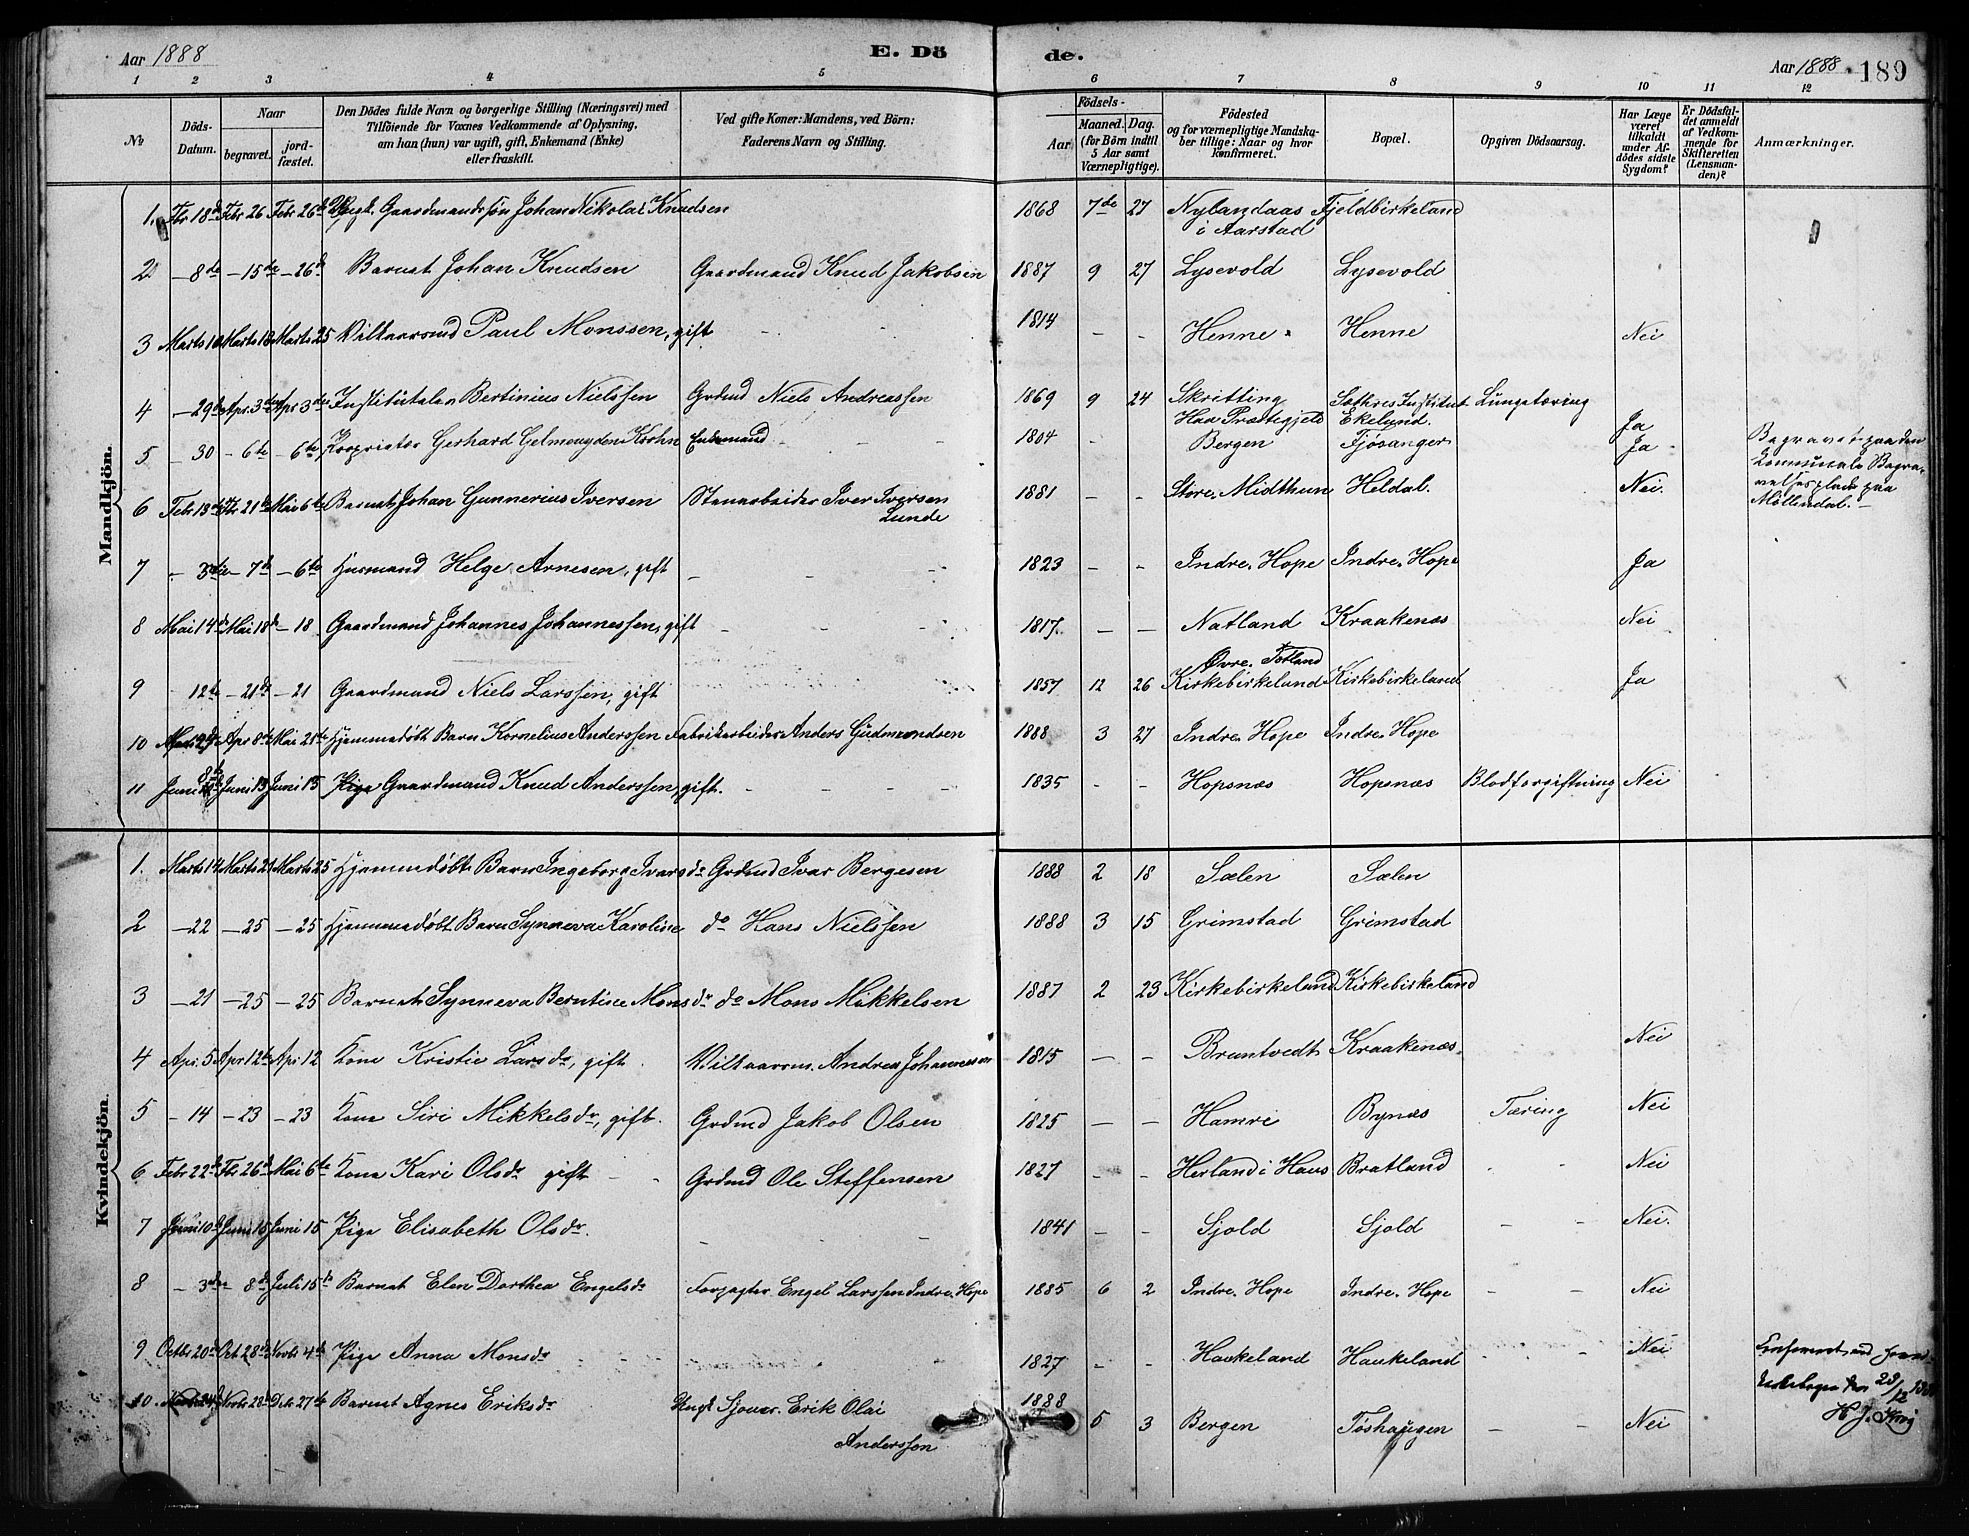 Aar 1888
E. Dö
de.
Aar 1888
189
1 2 3 4 5 6 7 8 9 10 11 12
№
Döds-Datum.
Naar
begravet.
jordfæstet.
Den Dödes fulde Navn og borgerlige Stilling (Næringsvei) med Tilföiende for Voxnes Vedkommende af Oplysning, om han (hun) var ugift, gift, Enkemand (Enke) eller fraskilt.
Ved gifte Koner: Mandens, ved Börn: Faderens Navn og Stilling.
Födsels-
Aar
Maaned. Dag. (for Börn indtil 5 Aar samt Værnepligtige).
Födested og for værnepligtige Mandskaber tillige: Naar og hvor konfirmeret.
Bopæl.
Opgiven Dödsaarsag.
Har Læge været tilkaldt under Afdödes sidste Sygdom?
Er Dödsfaldet anmeldt af Vedkommende for Skifteretten (Lensmanden)?
Anmærkninger.
Mandkjön.
1. Fbr 18de Febr 26 Febr 26de Ungk. Gaardmandssøn Johan Nikolai Knudsen 1868 7de 27 Nylandaas i Aarstad Fjeldbirkeland
2 — 8de — 15de — 26de Barnet Johan Knudsen Gaardmand Knud Jakobsen 1887 9 27 Lysevold Lysevold
3 Marts Marts 18 Marts 25 Vilkaarsmd Paul Monssen, gift - - 1814 - - Henne Henne Nei
4 — 29de Apr. 3die Apr 3die Bertinius Nielssen Grdmd Niels Andreassen 1869 9 24 Skritting Haa Præstegjeld Sæthres Institut Ekelund. Lungetæring Ja
5 — 30 — 6te — 6te Proprietær Gerhard Krohn Enkemand 1804 Bergen Fjøsanger Ja Begravet paa den kommunale Begravelsesplads paa Møllendal. —
6 Febr. 13de Fbr 21de Mai 6te Barnet Johan Gunnerius Iversen Stenarbeider Iver Iversen Lunde 1881 - - Store Midthun Heldal. Nei.
7 — 3die — 7de — 6te Husmand Helge Arnesen, gift - - - 1823 - - Indre Hope Indre Hope Ja
8 Mai 14de Mai 18de — 18 Gaardmand Johannes Johannessen, gift - - - 1817. — — Natland Kraakenæs Nei
9 12te — 21de — 21 Gaardmand Niels Larssen, gift 1857 12 26 Øvre Totland Kirkebirkeland Kirkebirkeland Ja
10 Apr 8de Mai 21de Hjemmedøbt Barn Kornelius Anderssen Fabrikarbeider Anders Gudmundsen 1888 3 27 Indre Hope Indre Hope
11 Juni 8de Juni 13 Juni 15 Gaardmand Knud Anderssen, gift. - - - 1835 - - Hopsnæs Hopsnæs Blodforgiftning Nei
Kvindekjön.
1. Marts 14 Marts 21 Marts 25 Hjemmedøbt Barn Ingeborg Ivarsdr Grdmd Ivar Bergesen 1888 2 18 Sælen Sælen
2 — 22 — 25 — 25 Hjemmedøbt Barn Synneva Karoline do Hans Nielssen 1888 3 15 Grimstad Grimstad
3 — 21 — 25 — 25 Barnet Synneva Berntine Monsdr do Mons Mikkelsen 1887 2 23 Kirkebirkeland Kirkebirkeland
4 Apr. 5 Apr 12te Apr 12 Kone Kristie Larsdr, gift. Vilkaarsm. Andreas Johannessen 1815 — — Bruntvedt Kraakenæs. Nei
5 — 14 — 23 — 23 Kone Siri Mikkelsdr, gift. Grdmd Jakob Olsen 1825 — — Hamre Bynæs Tæring Nei
6 Febr 22de Fbr 26de Mai 6te Kone Kari Olsdr gift - - Grdmd Ole Steffensen 1827 - - Herland i Haus Bratland - - Nei
7 Juni 10de Juni 15 Juni 15 Pige Elisabeth Olsdr. - - 1841 — - Sjold Sjold - - Nei.
8 — 3die — 8de Juli 15de Barnet Elen Dorthea Engelsdr Forpagter Engel Larssen Indre Hope 1885 6 2 Indre Hope Indre Hope - - Nei
9 Octbr 20de Oct. 28de Novbr 4de Pige Anna Monsdr - - 1827 - - Haukeland Haukeland - - Nei
10. Novbr 24de Novbr 28de Dcbr 27de Barnet Agnes Eriksdr Ungk Sjømd. Erik Olai Anderssen 1888 5 3 Bergen Tøshaugen - - Nei
28/12 1888
H. J. Krog